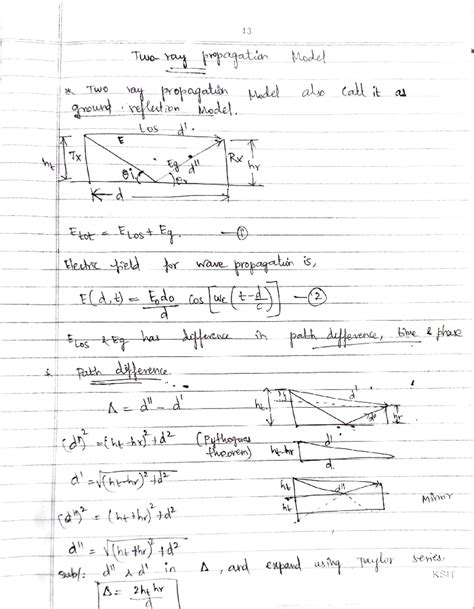 13
Two ray propagation Model
* Two ray propagation Model also call it as
ground reflection Model.
LOS d'
E
ht Tx Eg d'' Rx hr
θi θr
d
Etot = ELOS + Eg. — ①
Electric field for wave propagation is,
E(d,t) = E0d0/d cos[wc(t-d/c)] — ②
ELOS & Eg has difference in path difference, time & phase
Path difference
Δ = d'' - d'
ht Tx d' hr
(d')² = (ht-hr)² + d² (Pythogorus theorem)
ht-hr
d
d' = √(ht-hr)² + d²
ht d''
ht
Mirror
(d'')² = (ht+hr)² + d²
d'' = √(ht+hr)² + d²
sub/: d'' & d' in Δ, and expand using Taylor series.
KSIT
Δ = 2hthr/d